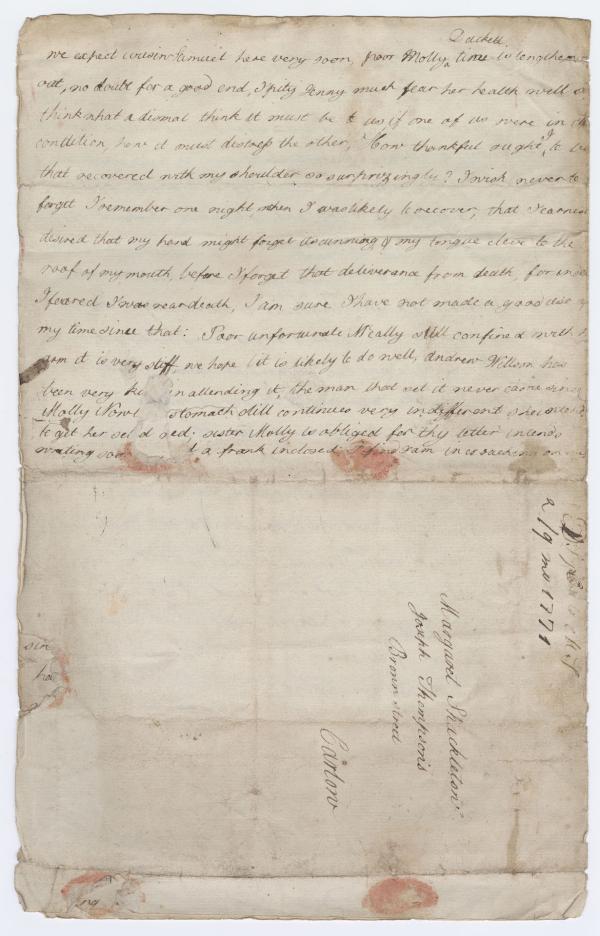 Duckett
we expect cousin Samuel here very soon, poor Molly ^ time is lengthen
out, no doubt for a good end, I pity Jenny much fear her health well
think what a dismal think it must be to us if one of us were in
condition, how it must distress the other, How thankful ought I to be
that recovered with my shoulder so surprizingly? I wish never to
forget I remember one night when I was likely to recover, that I earnes
desired that my hand might forget its cunning & my tongue cleve to the
roof of my mouth, before I forget that deliverance from death, for inde
I feared I was near death, I am sure I have not made a good use
my time since that: Poor unfortunate Neally still confined with
arm it is very stiff we hope it is likely to do well, Andrew Willson has
been very in attending it, the man that set it never came since
Molly Nowl stomach still continues very indifferent she
to get her red: sister Molly is obliged for thy letter intends
writing a frank inclosed
2/9 mo 1771
Margaret Shackleton
Joseph Thompson's
Brown Street
Carlow
sin
ha
ng